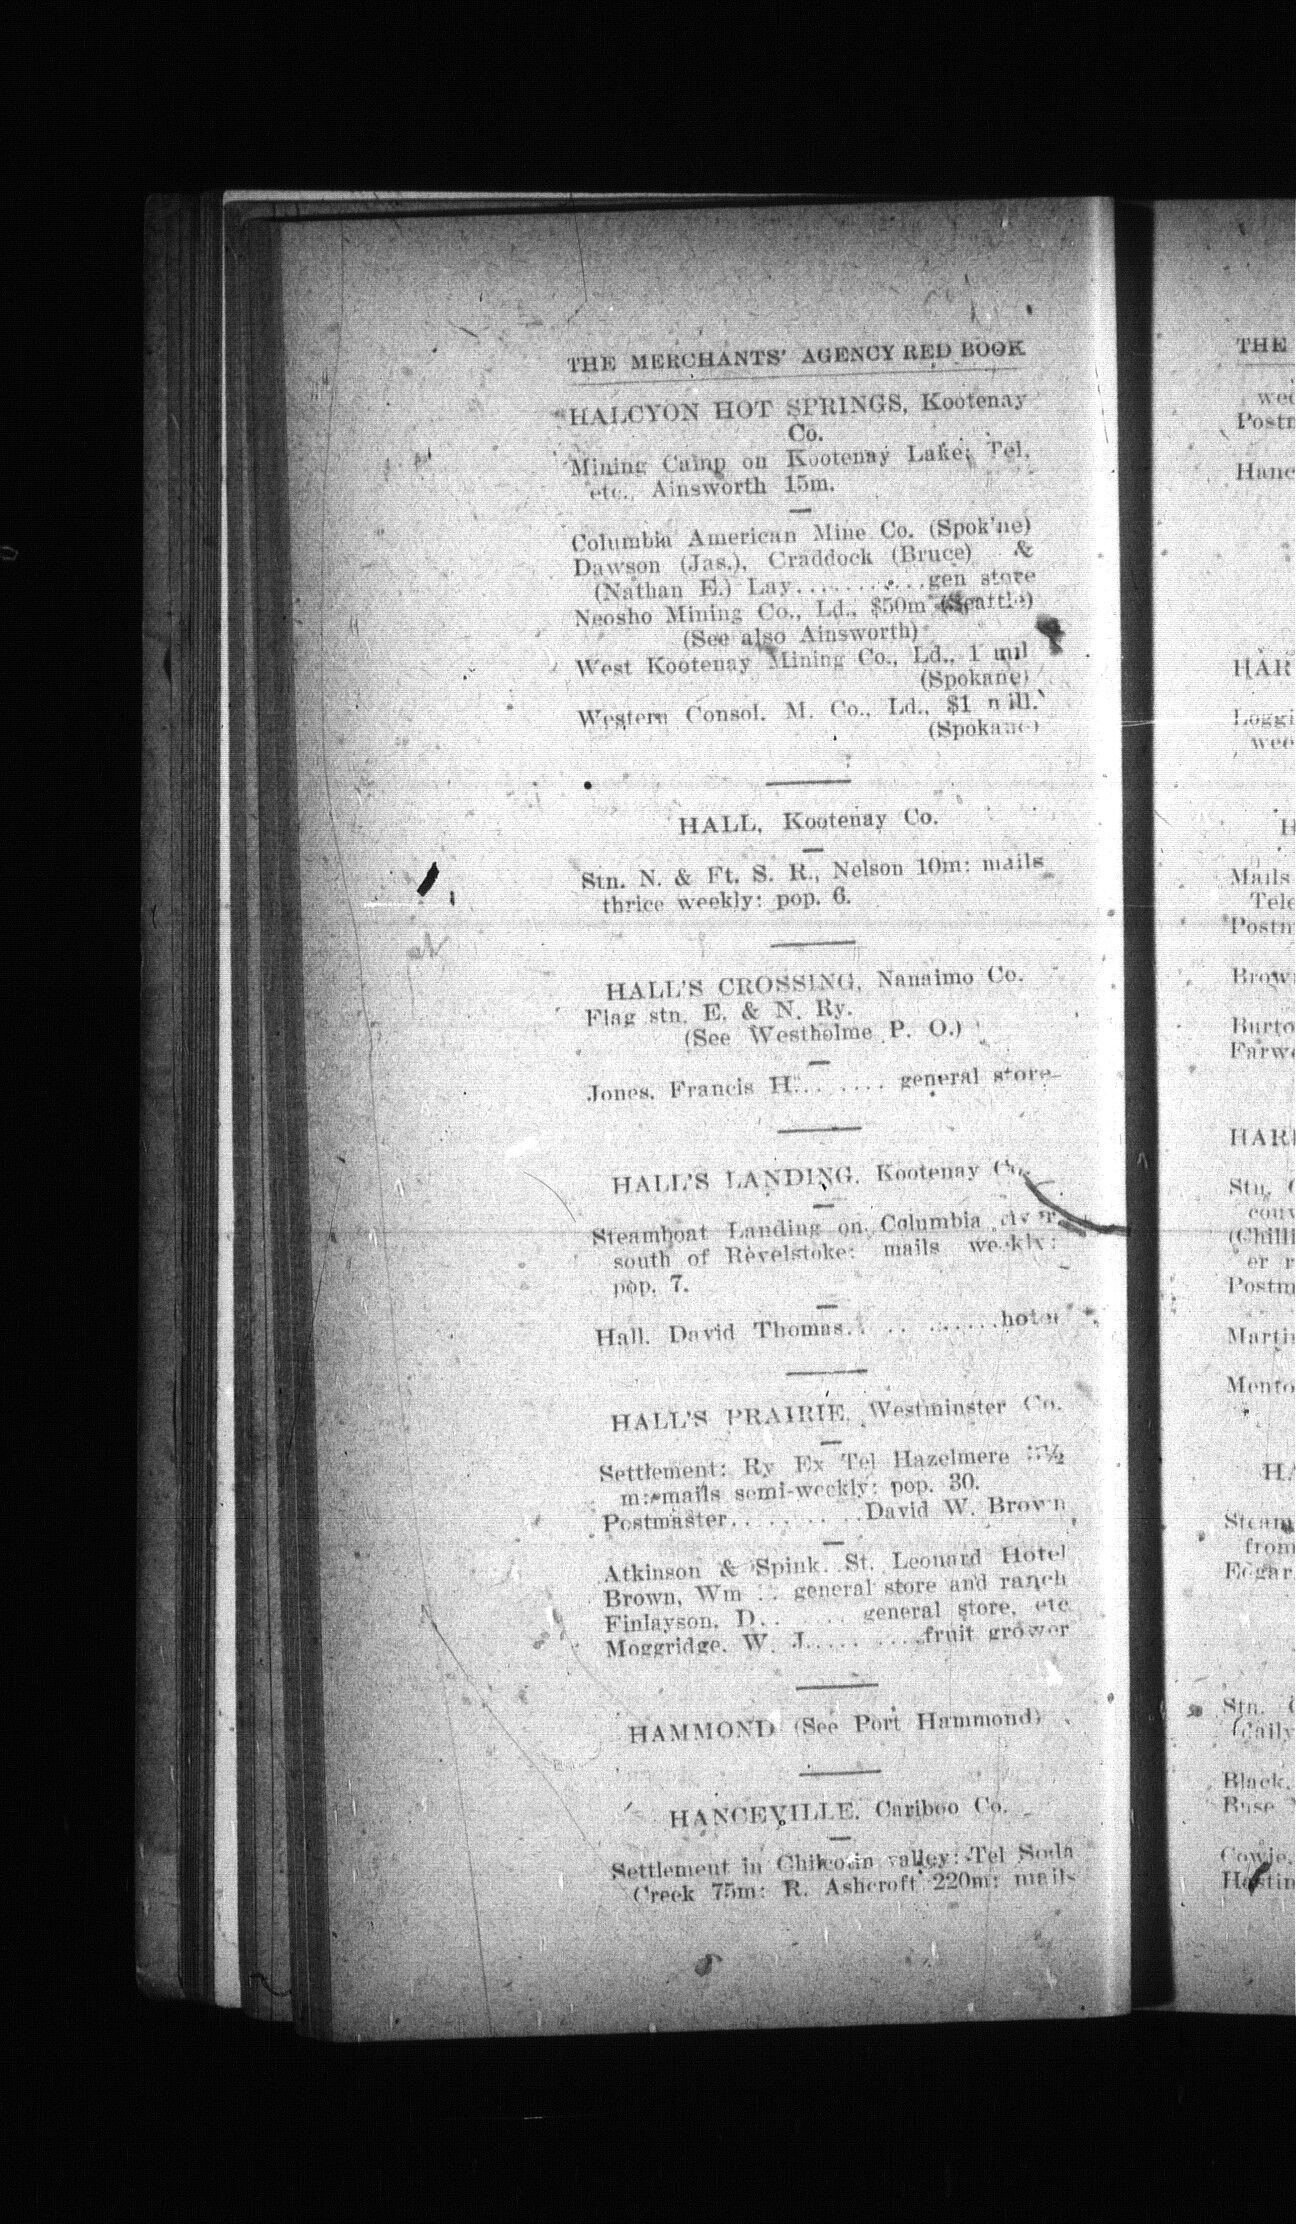 THE MERCHANTS' AGENCY RED BOOK
HALCYON HOT SPRINGS, Kootenay
Co.
Mining Camp on Kootenay Lake; Tel.
etc., Ainsworth 15m.
Columbia American Mine Co. (Spok'ne)
Dawson (Jas.), Craddock (Bruce) &
(Nathan E.) Lay...........gen store
Neosho Mining Co., Ld., $50m (Seattle)
(See also Ainsworth)
West Kootenay Mining Co., Ld., 1 mil
(Spokane)
Western Consol. M. Co., Ld., $1 mill.
(Spokane)
HALL, Kootenay Co.
Stn. N. & Ft. S. R., Nelson 10m: mails
thrice weekly: pop. 6.
HALL'S CROSSING, Nanaimo Co.
Flag stn. E. & N. Ry.
(See Westholme P. O.)
Jones, Francis H....... general store
HALL'S LANDING, Kootenay Co.
Steamboat Landing on Columbia river
south of Revelstoke: mails weekly:
pop. 7.
Hall, David Thomas...........hotel
HALL'S PRAIRIE, Westminster Co.
Settlement: Ry Ex Tel Hazelmere ½
m: mails semi-weekly: pop. 30.
Postmaster.........David W. Brown
Atkinson & Spink. St. Leonard Hotel
Brown, Wm .. general store and ranch
Finlayson, D....... general store, etc
Moggridge, W. J.........fruit grower
HAMMOND (See Port Hammond)
HANCEVILLE, Cariboo Co.
Settlement in Chilcotin valley: Tel Soda
Creek 75m: R. Ashcroft 220m: mails
THE
Postm
Hanc
HAR
Loggi
wee
H
Mails
Tele
Postm
Brown
Burto
Farwe
HARR
Stn. C
conv
(Chilli
er r
Postm
Martin
Mento
HA
Steam
from
Edgar
Stn.
(daily
Black,
Buse
Cowie,
Hastin